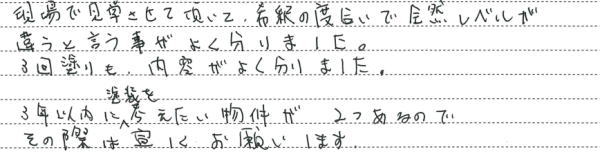 現場で見学させて頂いて、希釈の度合いで全然レベルが
違うと言う事がよく分りました。
3回塗りも、内容がよく分りました。
塗装を
3年以内に考えたい物件が 2つあるので
その際は宜しくお願いします。